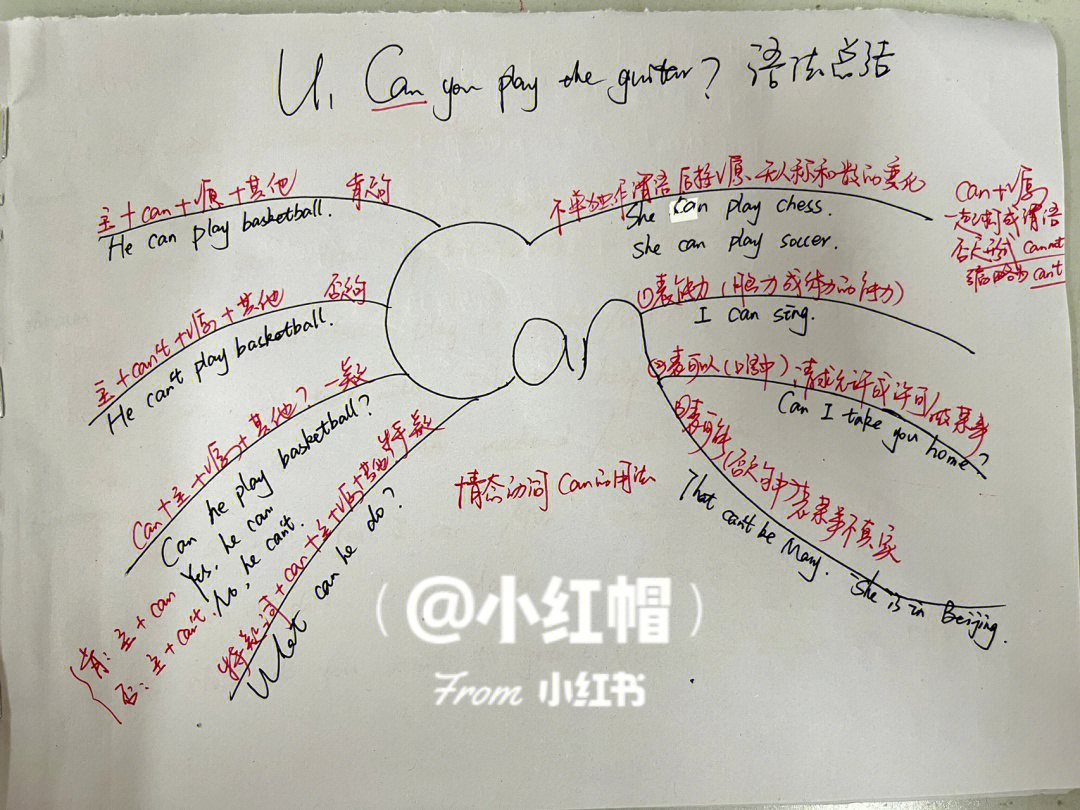 U1 Can you play the guitar? 语法总结
主+can+v原+其他 肯定句
He can play basketball.
主+can't+v原+其他 否定句
He can't play basketball.
Can+主+v原+其他? 一般疑
Can he play basketball?
Yes, he can
No, he can't.
肯:主+can
否:主+can't.
特殊疑问词+can+主+v原+其他 特殊疑
What can he do?
Can
情态动词Can的用法
不单独作谓语 后接v原、无人称和数的变化
She can play chess.
she can play soccer.
can+v原
一起构成谓语
否定形式 cannot
缩略为can't
(1)表能力(脑力或体力的能力)
I can sing.
(2)表可以(口语中)请求允许或许可做某事
Can I take you home?
(3)表可能(否定句中)表某事不真实
That can't be Mary. She is in Beijing.
(@小红帽)
From 小红书